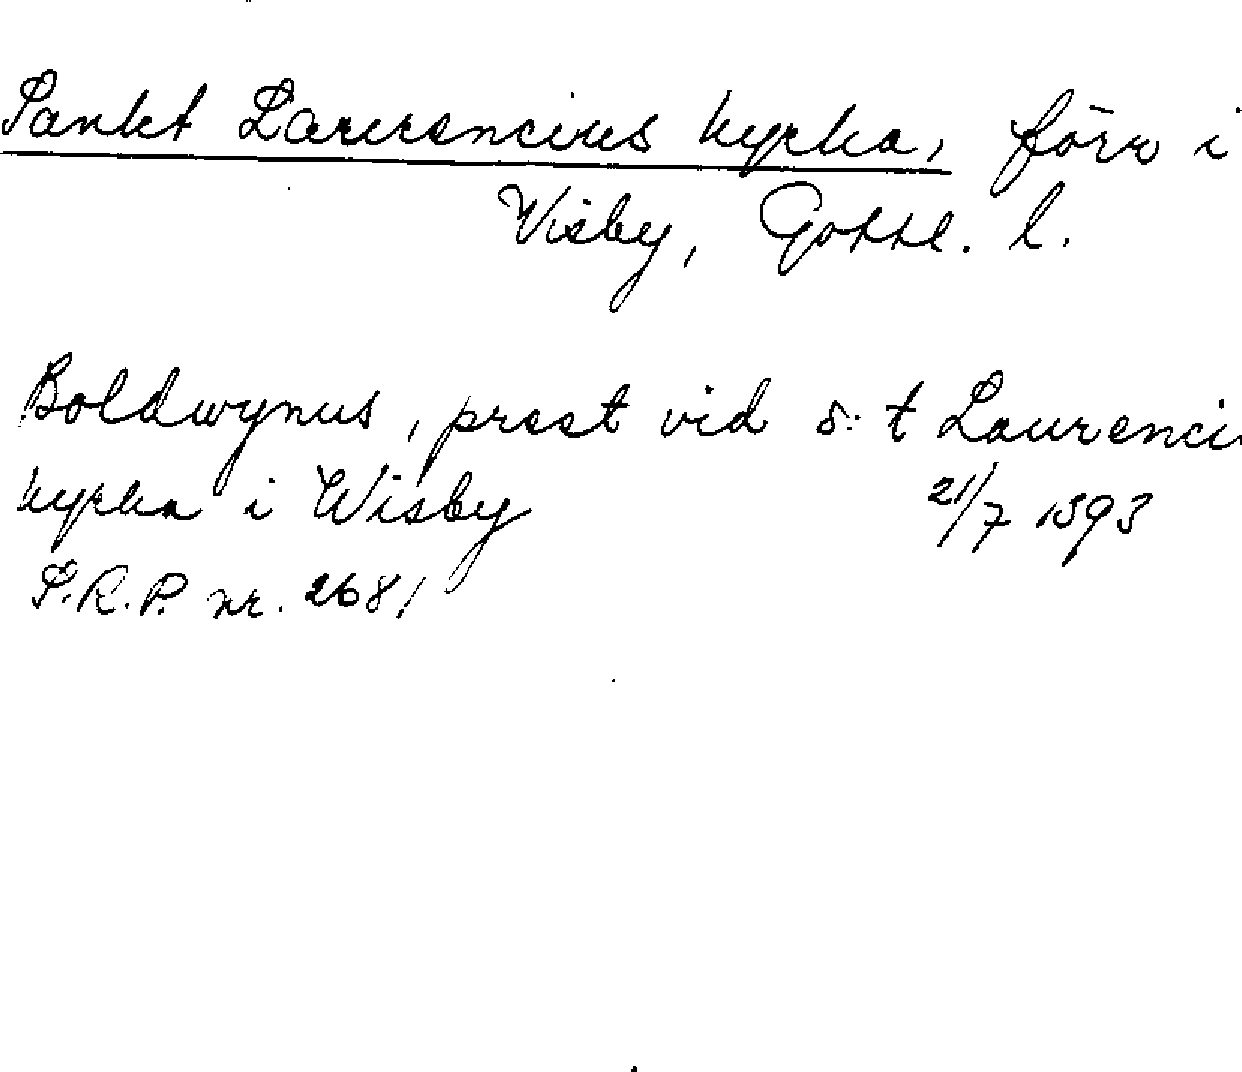 Sankt Laurencius kyrka, förr i
Visby, Gottl. l.
Boldwynus, prest vid s:t Laurenci
kyrka i Wisby 21/7 1393
S.R.P. nr. 2681